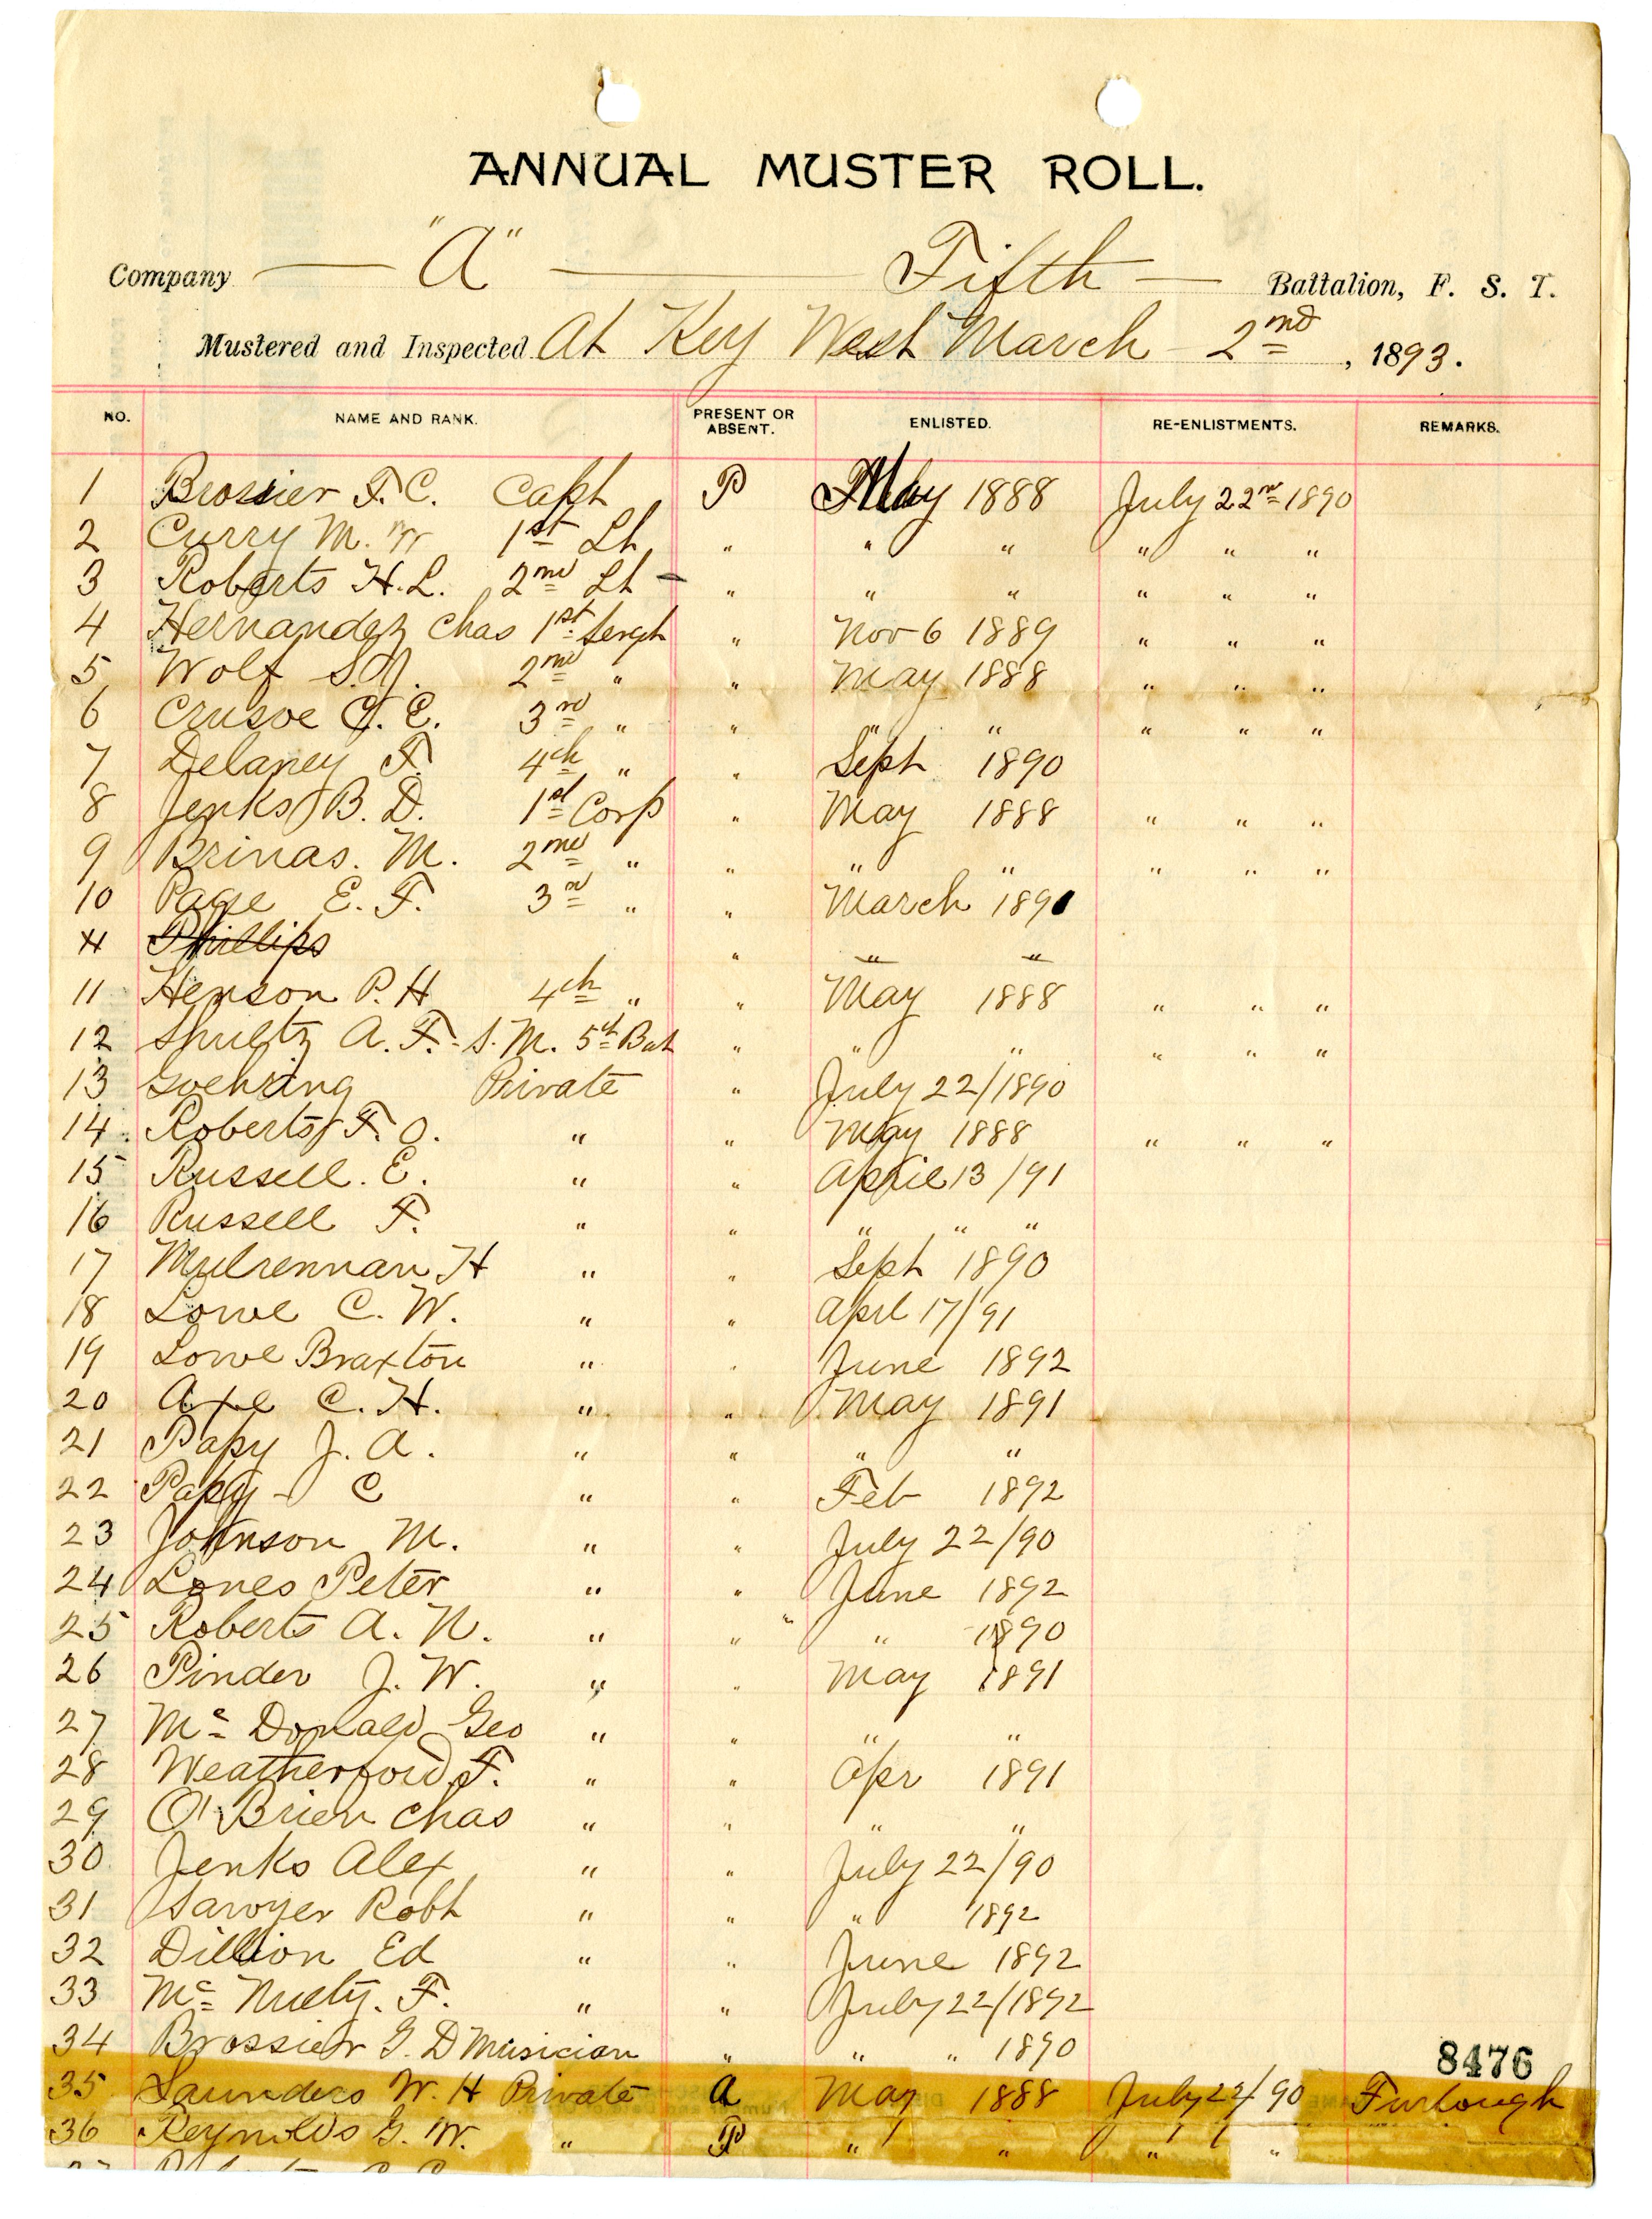 ANNUAL MUSTER ROLL.
Company "A" Fifth Battalion, F. S. T.
Mustered and Inspected At Key West March 2nd, 1893.
NO. NAME AND RANK. PRESENT OR ABSENT. ENLISTED. RE-ENLISTMENTS. REMARKS.
1 Brossier F. C. Capt P May 1888 July 22nd 1890
2 Curry M. W 1st Lt " " " " " "
3 Roberts H. L. 2nd Lt " " " " " "
4 Hernandez Chas 1st Sergt " Nov 6 1889 " " "
5 Wolf 2nd " " May 1888 " " "
6 Crusoe E. 3rd " " " " " " "
7 Delaney F. 4th " " Sept 1890
8 Jenks B. D. 1st Corp " May 1888 " " "
9 Brinas. M. 2nd " " " " " " "
10 Page E. F. 3rd " " March 1891
11 Phillips " " "
11 Henson P. H 4th " " May 1888 " " "
12 Shultz A. F. S. M. 5th Bat " " " " " "
13 Goehring Private " July 22/1890
14 Roberts F. O. " " May 1888 " " "
15 Russell. E. " " April 13/91
16 Russell F. " " " " "
17 Mulrennan H " " Sept 1890
18 Lowe C. W. " " Aprl 17/91
19 Lowe Braxton " " June 1892
20 Axe C. H. " " May 1891
21 Papy J. A. " " " "
22 Papy - C " " Feb 1892
23 Johnson M. " " July 22/90
24 Lones Peter " " June 1892
25 Roberts A. N. " " " 1890
26 Pinder J. W. " " May 1891
27 Mc Donald Geo " " " "
28 Weatherford F. " " Apr 1891
29 O'Brien Chas " " " "
30 Jenks Alex " " July 22/90
31 Sawyer Robt " " " 1892
32 Dillion Ed " " June 1892
33 Mc Nulty. F. " " July 22/1892
34 Brossier G. D Musician " " " 1890
8476
35 Saunders W. H Private A May 1888 July 22/90 Furlough
36 Reynolds G. W. " P " " " "